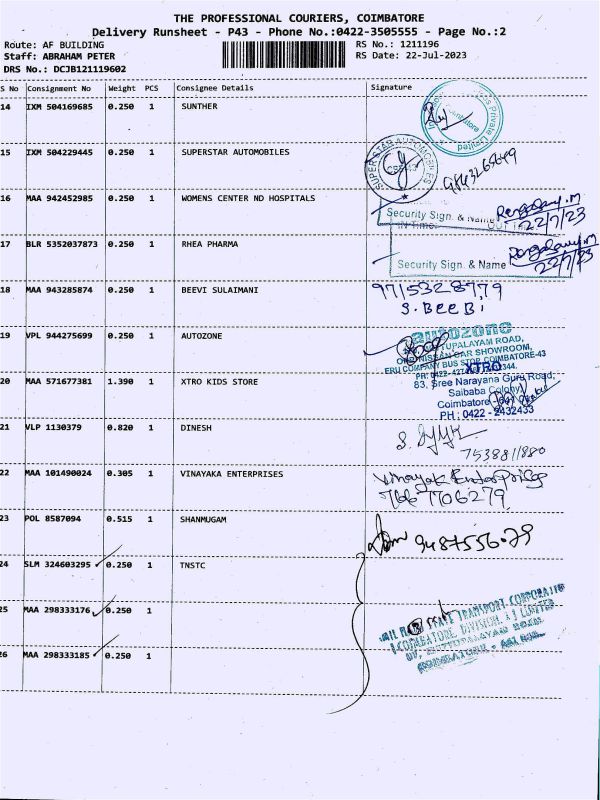 THE PROFESSIONAL COURIERS, COIMBATORE
Delivery Runsheet - P43 - Phone No.:0422-3505555 - Page No.:2
Route: AF BUILDING RS No.: 1211196
Staff: ABRAHAM PETER RS Date: 22-Jul-2023
DRS No.: DCJB121119602
S No Consignment No Weight PCS Consignee Details Signature
14 IXM 504169685 0.250 1 SUNTHER
Private Limited
Coimbatore
15 IXM 504229445 0.250 1 SUPERSTAR AUTOMOBILES
SUPER STAR AUTOMOBILES
16 MAA 942452985 0.250 1 WOMENS CENTER ND HOSPITALS
Security Sign. & Name
IN Time:
22/7/23
17 BLR 5352037873 0.250 1 RHEA PHARMA
Security Sign. & Name
22/7/23
18 MAA 943285874 0.250 1 BEEVI SULAIMANI
9715328779
S. BEEBi
19 VPL 944275699 0.250 1 AUTOZONE
autozone
TUPALAYAM ROAD,
NISSAN CAR SHOWROOM,
ERU COMPANY BUS STOP, COIMBATORE-43
20 MAA 571677381 1.390 1 XTRO KIDS STORE
XTRO
83, Sree Narayana Guru Road,
Saibaba Colony,
Coimbatore
PH : 0422 - 2432433
21 VLP 1130379 0.820 1 DINESH
7538811880
22 MAA 101490024 0.305 1 VINAYAKA ENTERPRISES
Vinayak Enterprises
766 7706279
23 POL 8587094 0.515 1 SHANMUGAM
9487556079
24 SLM 324603295 0.250 1 TNSTC
25 MAA 298333176 0.250 1
STATE TRANSPORT CORPORATION
COIMBATORE DIVISION
26 MAA 298333185 0.250 1